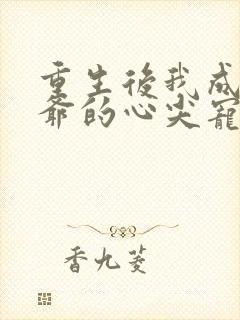 重生後我成
爺的心尖寵
香九菱